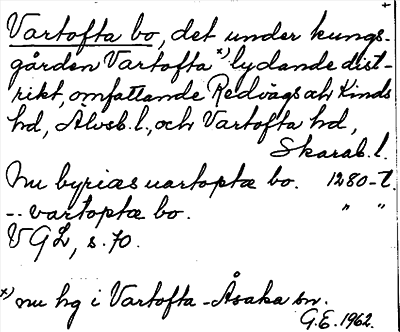 Vartofta bo, det under kungs-
gården Vartofta x) lydande dist-
rikt, omfattande Redvägs och Kinds
hd, Älvsb. l., och Vartofta hd,
Skarab. l.
Nu byriæs uartoptæ bo. 1280-t.
-- vartoptæ bo. " "
VGL, s. 70.
x) nu hg i Vartofta-Åsaka sn.
G.E. 1962.